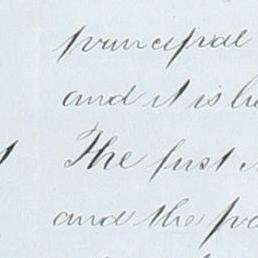 principal
and it is
The first
and the